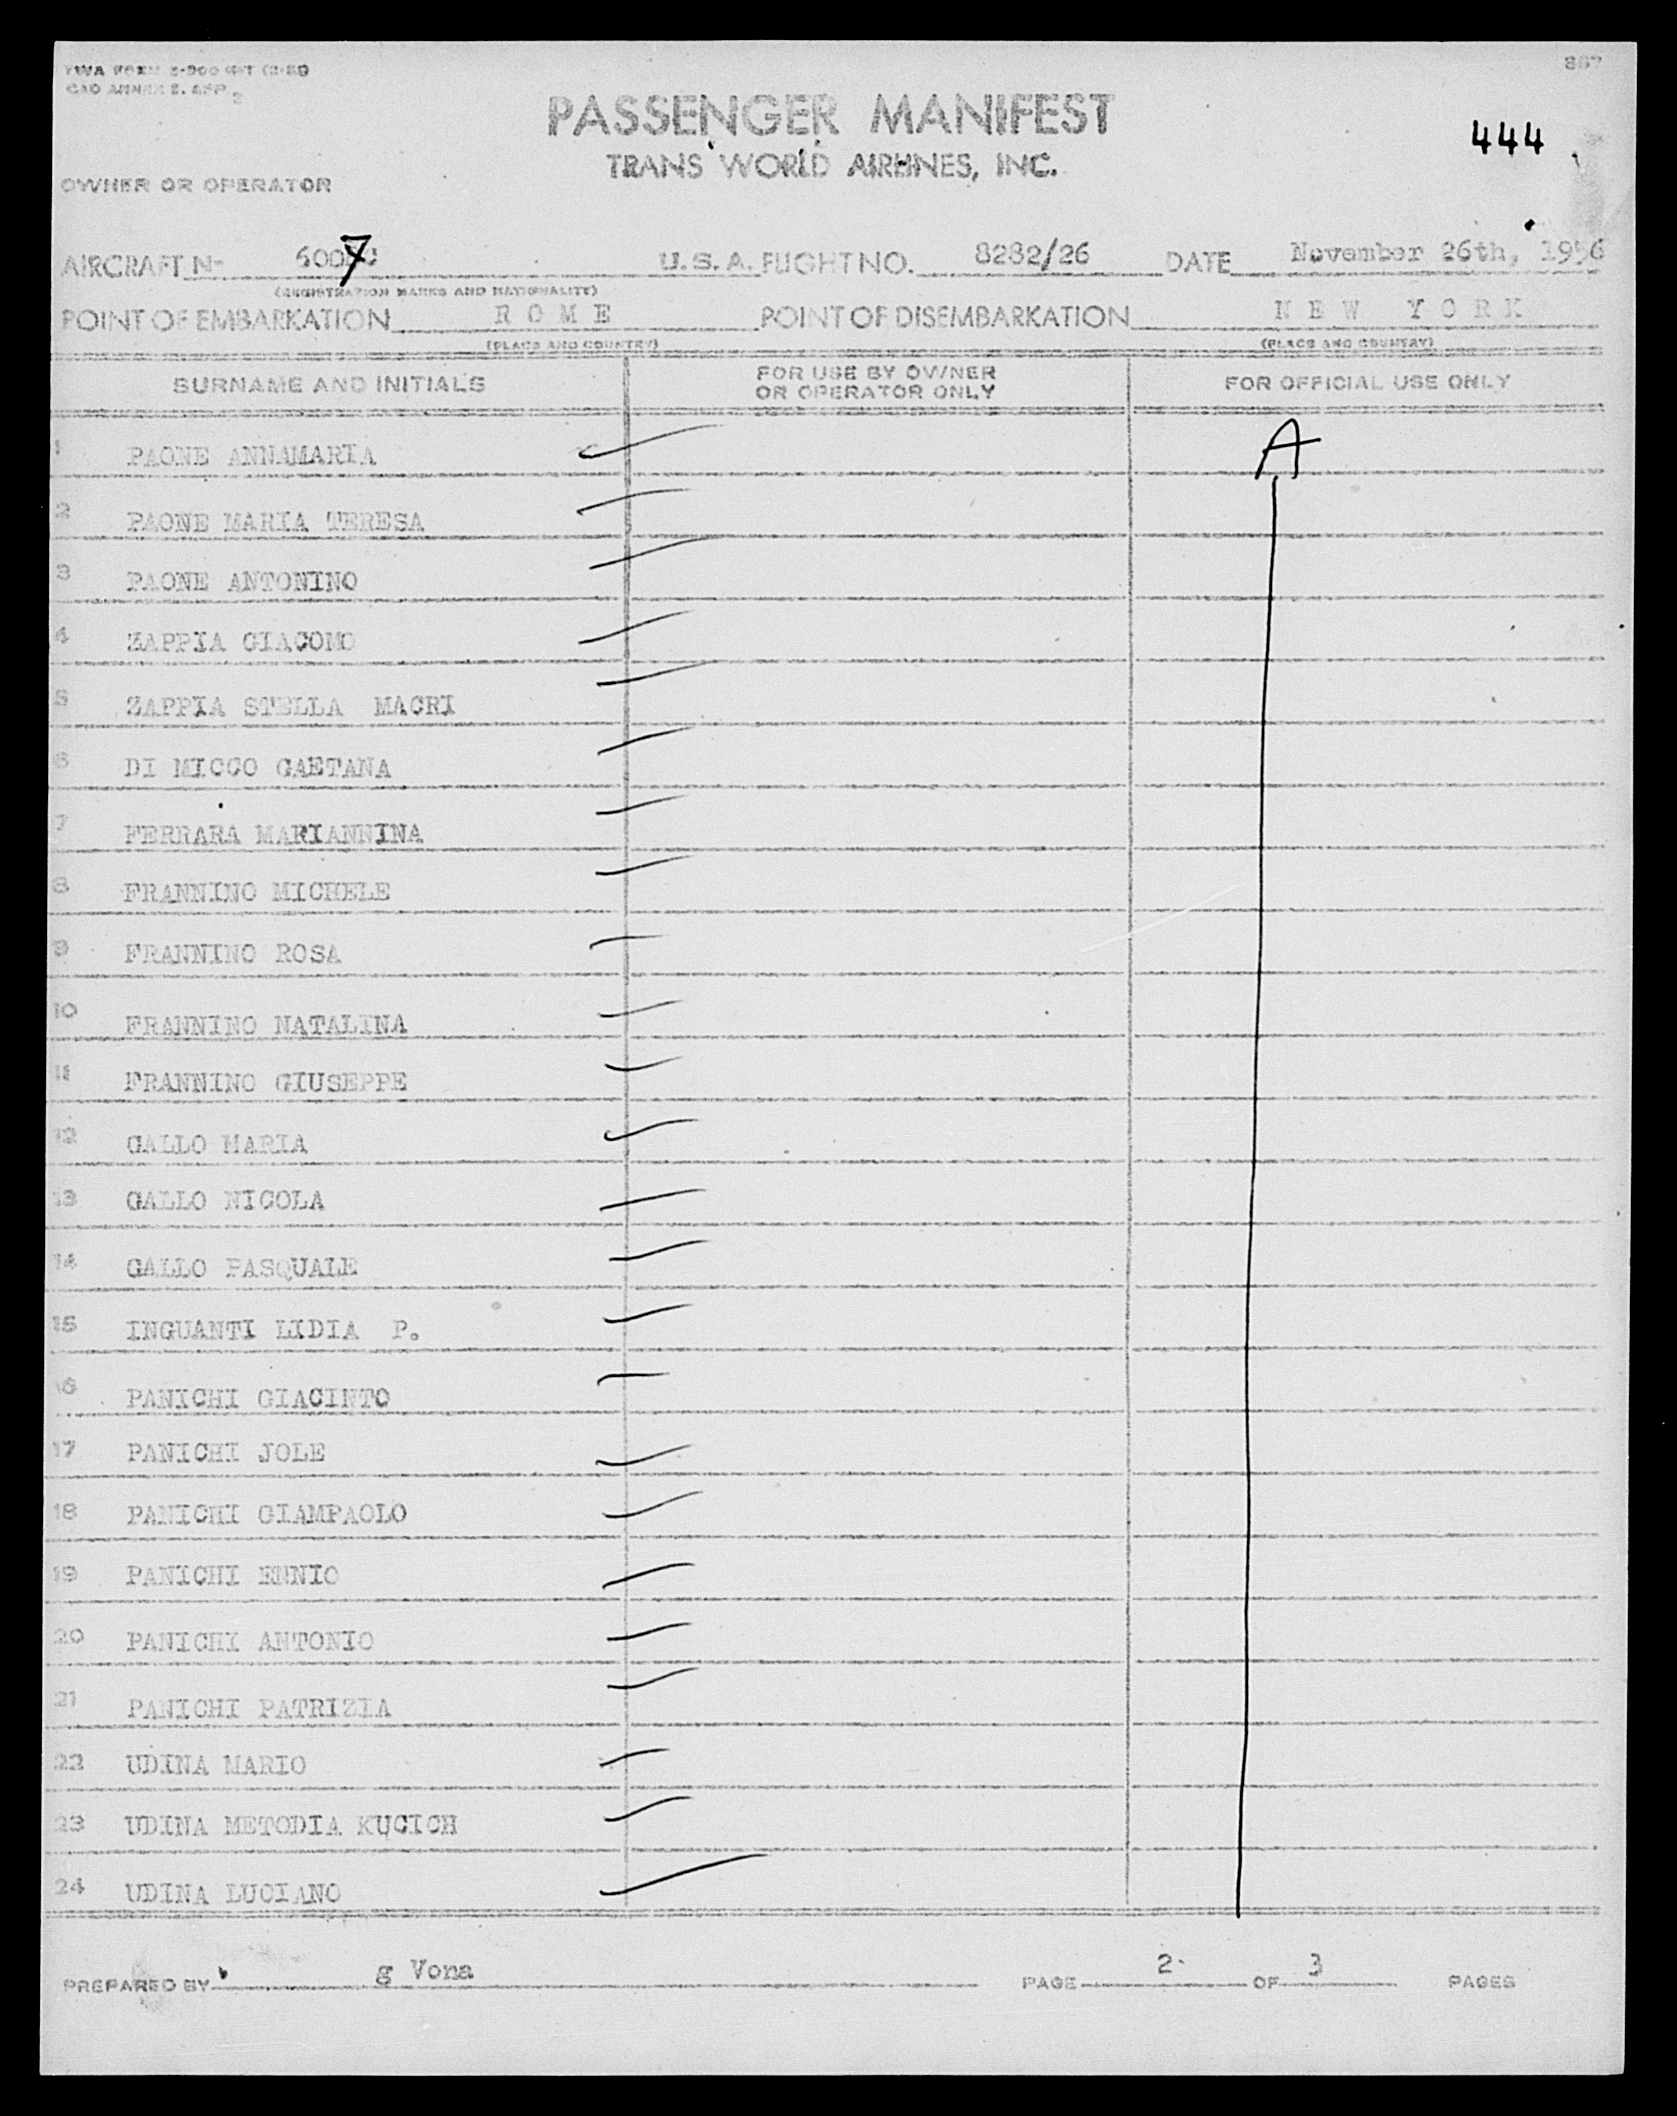 TWA FORM
867
PASSENGER MANIFEST
444
TRANS WORLD AIRLINES, INC.
OWNER OR OPERATOR
AIRCRAFT Nº 6007C U. S. A. FLIGHT NO. 8282/26 DATE November 26th, 1956
(REGISTRATION MARKS AND NATIONALITY)
POINT OF EMBARKATION R O M E POINT OF DISEMBARKATION N E W Y O R K
(PLACE AND COUNTRY) (PLACE AND COUNTRY)
SURNAME AND INITIALS FOR USE BY OWNER OR OPERATOR ONLY FOR OFFICIAL USE ONLY
1 PAONE ANNAMARIA A
2 PAONE MARIA TERESA
3 PAONE ANTONINO
4 ZAPPIA GIACOMO
5 ZAPPIA STELLA MACRI
6 DI MICCO GAETANA
7 FERRARA MARIANNINA
8 FRANNINO MICHELE
9 FRANNINO ROSA
10 FRANNINO NATALINA
11 FRANNINO GIUSEPPE
12 GALLO MARIA
13 GALLO NICOLA
14 GALLO PASQUALE
15 INGUANTI LIDIA P.
16 PANICHI GIACINTO
17 PANICHI JOLE
18 PANICHI GIAMPAOLO
19 PANICHI ENNIO
20 PANICHI ANTONIO
21 PANICHI PATRIZIA
22 UDINA MARIO
23 UDINA METODIA KUCICH
24 UDINA LUCIANO
PREPARED BY g Vona PAGE 2 OF 3 PAGES